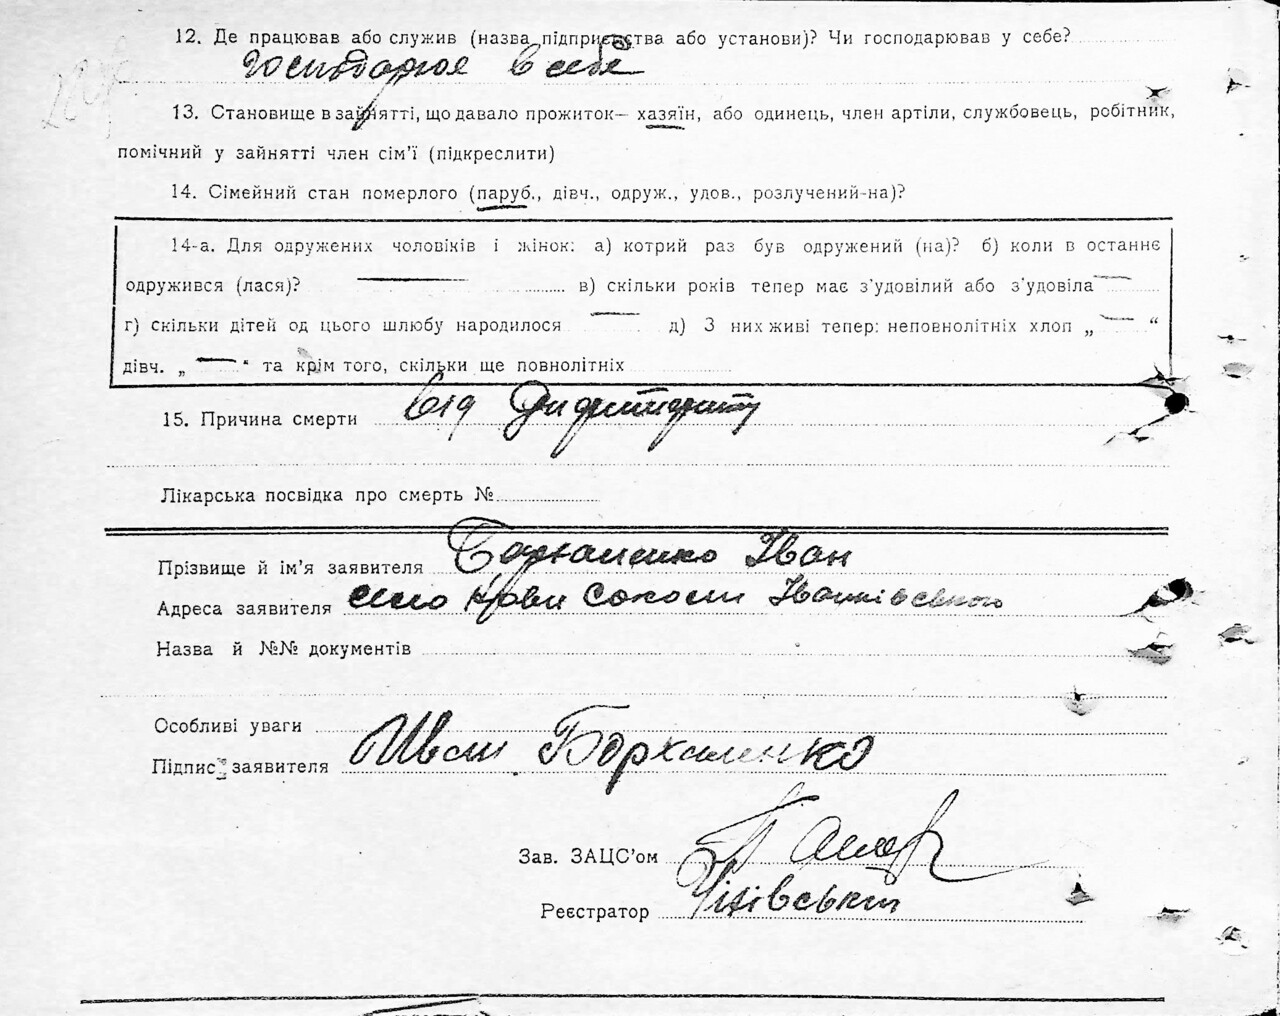 12. Де працював або служив (назва підприємства або установи)? Чи господарював у себе?
Господарює в себе
13. Становище в зайнятті, що давало прожиток— хазяїн, або одинець, член артіли, службовець, робітник,
помічний у зайнятті член сім'ї (підкреслити)
14. Сімейний стан померлого (паруб., дівч., одруж., удов., розлучений-на)?
14-а. Для одружених чоловіків і жінок: а) котрий раз був одружений (на)? б) коли в останнє
одружився (лася)? в) скільки років тепер має з'удовілий або з'удовіла
г) скільки дітей од цього шлюбу народилося д) З них живі тепер: неповнолітніх хлоп „ — “
дівч. „ — “ та крім того, скільки ще повнолітніх
15. Причина смерти від
Лікарська посвідка про смерть №
Прізвище й ім'я заявителя Бархаленко Іван
Адреса заявителя село Іванківського
Назва й №№ документів
Особливі уваги
Підпис заявителя Иван Бархаленко
Зав. ЗАЦС'ом
Реєстратор